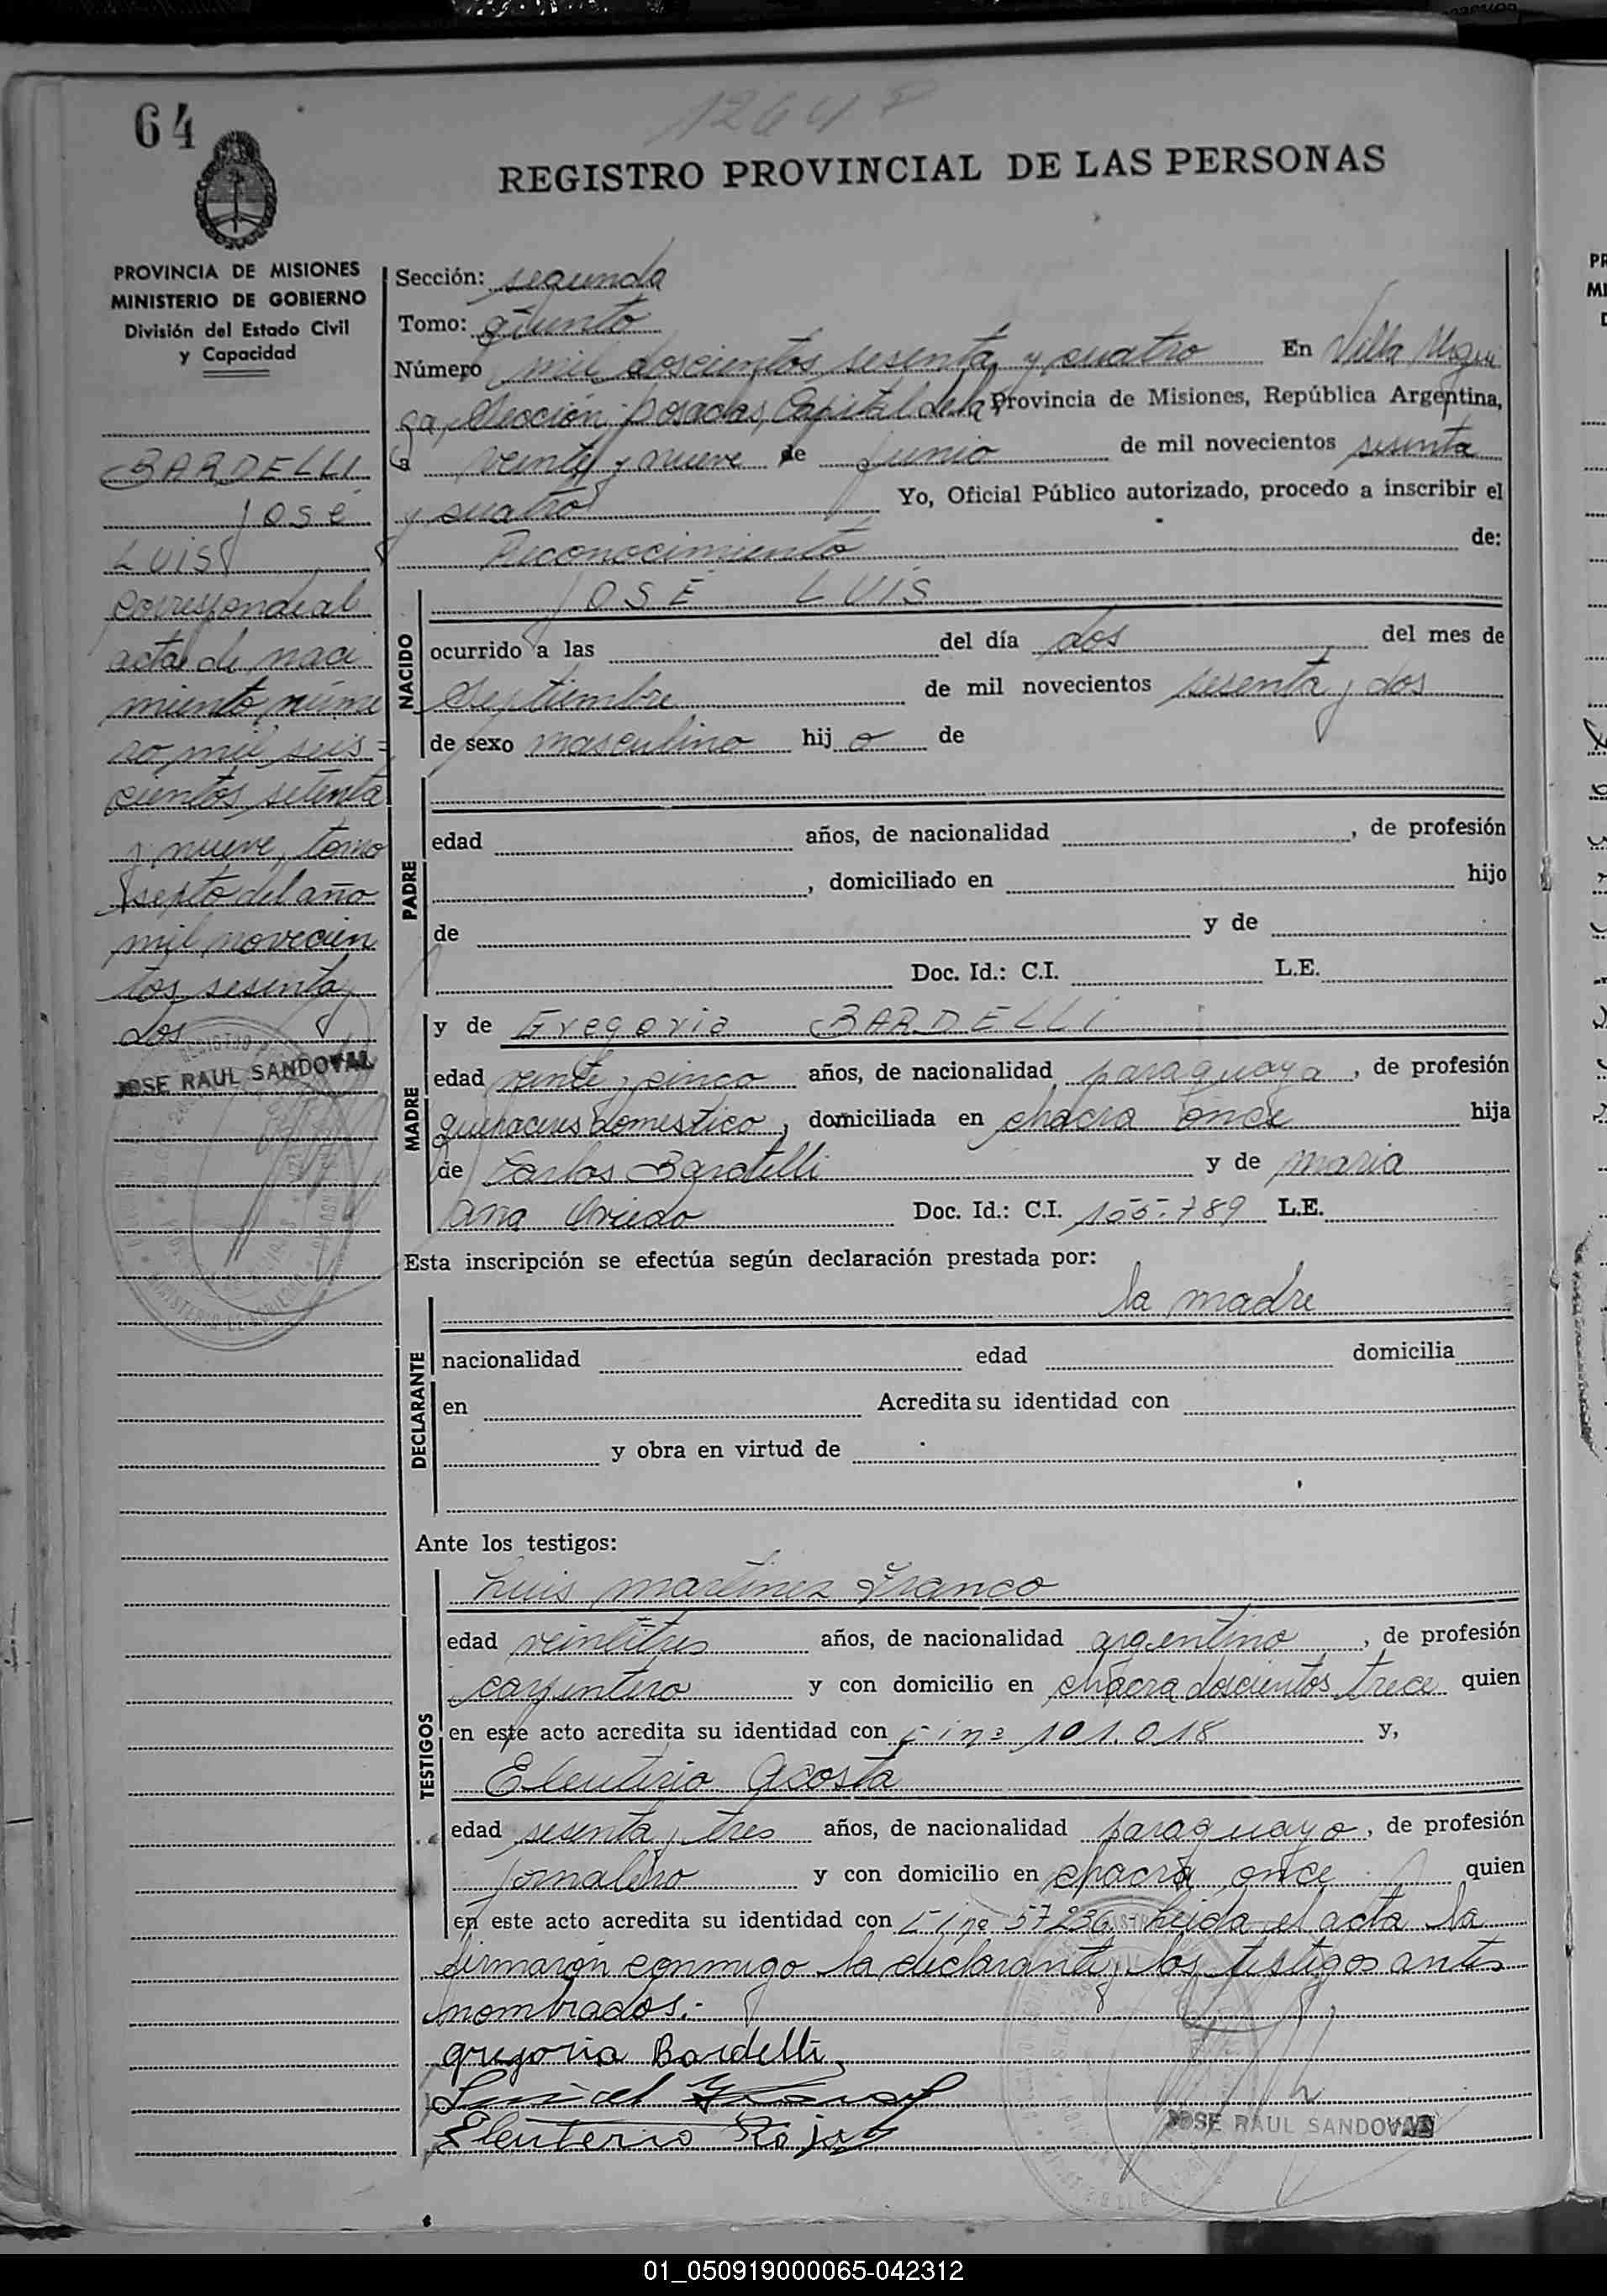 64
1264
REGISTRO PROVINCIAL DE LAS PERSONAS
PROVINCIA DE MISIONES
MINISTERIO DE GOBIERNO
División del Estado Civil
y Capacidad
BARDELLI
José
LUIS
corresponde al
acta de naci
miento núme
ro mil seis=
cientos setenta
y nueve, tomo
septo del año
mil novecien
tos sesenta y
dos
JOSE RAUL SANDOVAL
Sección: segunda
Tomo: quinto
Número mil doscientos sesenta y cuatro En Villa Urqui
za, Sección Posadas, Capital de la Provincia de Misiones, República Argentina,
a veinte y nueve de junio de mil novecientos sesenta
y cuatro Yo, Oficial Público autorizado, procedo a inscribir el
Reconocimiento de:
NACIDO
JOSÉ LUIS
ocurrido a las del día dos del mes de
Septiembre de mil novecientos sesenta y dos
de sexo masculino hij o de
PADRE
edad años, de nacionalidad , de profesión
, domiciliado en hijo
de y de
Doc. Id.: C.I. L.E.
MADRE
y de Gregoria BARDELLI
edad veinte y cinco años, de nacionalidad paraguaya, de profesión
quehaceres domestico, domiciliada en chacra once hija
de Carlos Bardelli y de maria
Ana Oviedo Doc. Id.: C.I. 155.789 L.E.
Esta inscripción se efectúa según declaración prestada por:
DECLARANTE
la madre
nacionalidad edad domicilia
en Acredita su identidad con
y obra en virtud de
Ante los testigos:
TESTIGOS
Luis martinez Franco
edad veintitres años, de nacionalidad argentino, de profesión
carpintero y con domicilio en chacra doscientos trece quien
en este acto acredita su identidad con C i nº 101.018 y,
Eleuterio Acosta
edad sesenta y tres años, de nacionalidad paraguayo, de profesión
jornalero y con domicilio en chacra once quien
en este acto acredita su identidad con C I nº 57236 leida el acta la
firmaron conmigo la declarante y los testigos antes
nombrados.-
gregoria Bardelli
Eleuterio Rojas
JOSE RAUL SANDOVAL
01_050919000065-042312